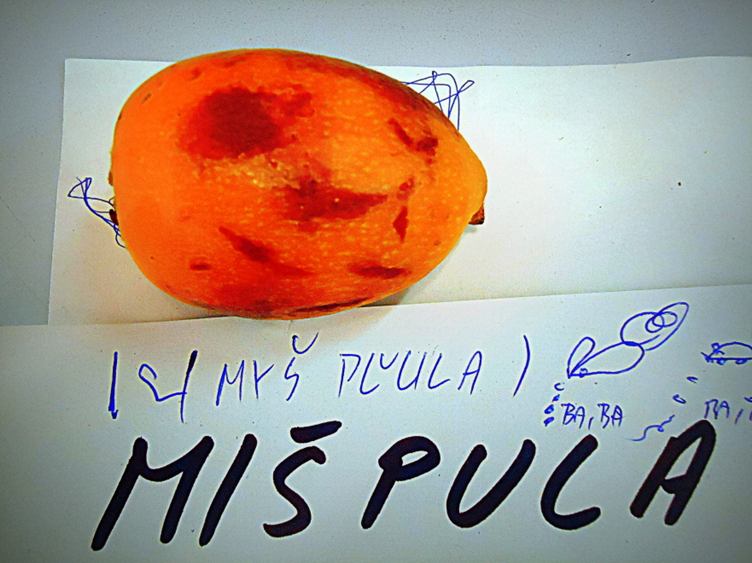 MYŠ PLUULA )
BA, BA
MIŠPULA